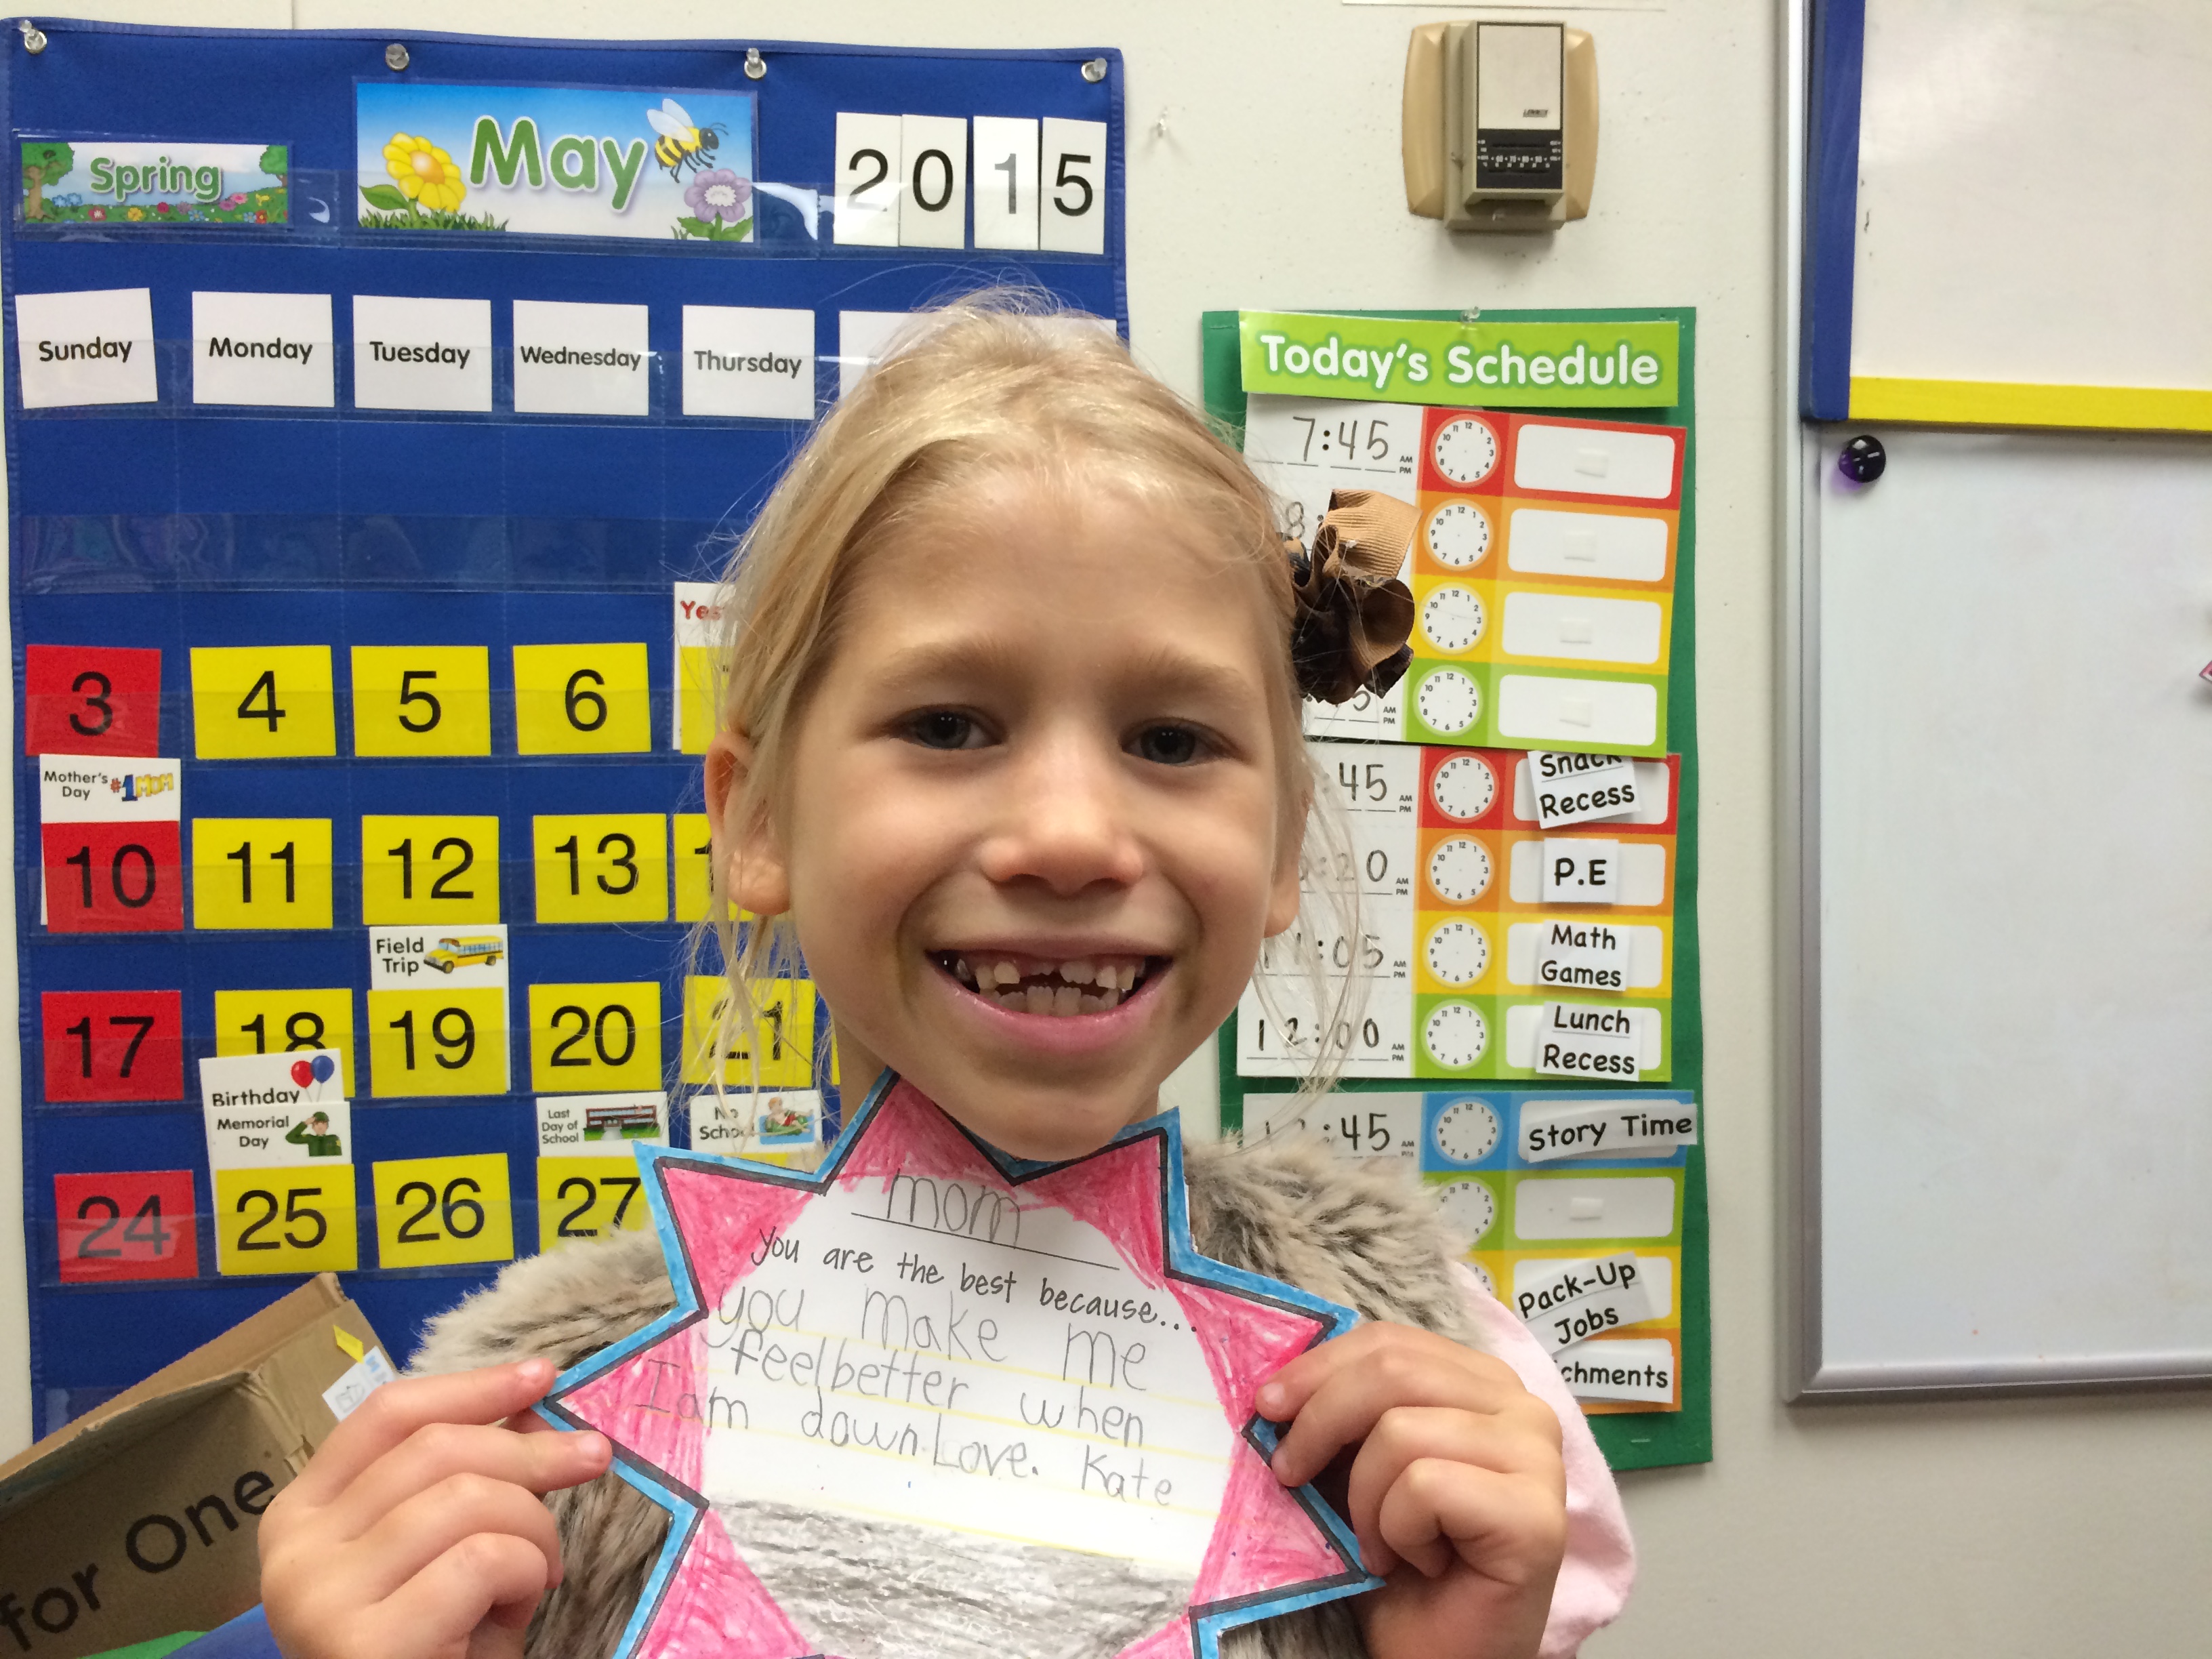 Spring
May
2015
Sunday Monday Tuesday Wednesday Thursday
Yes
3 4 5 6
Mother's Day #1 MOM
10 11 12 13
Field Trip
17 18 19 20 21
Birthday
Memorial Day
Last Day of School
No School
24 25 26 27
for One
LENNOX
Today's Schedule
7:45 AM PM
Snack
Recess
P.E
Math
Games
12:00 AM PM
Lunch
Recess
:45 AM PM
Story Time
Pack-Up
Jobs
chments
mom
you are the best because...
you make me
feel better when
I am down. Love. Kate